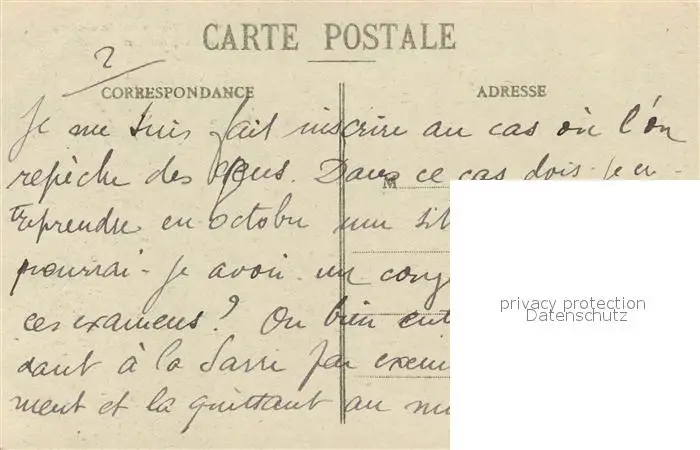 CARTE POSTALE
2
CORRESPONDANCE
ADRESSE
Je me suis fait inscrire au cas où l'on
repêche des gens. Dans ce cas dois-je en-
M
treprendre en octobre une
pourrai-je avoir un cong
ces examens? Ou bien
dant à la Sarre par exem
ment et la quittant au
privacy protection
Datenschutz